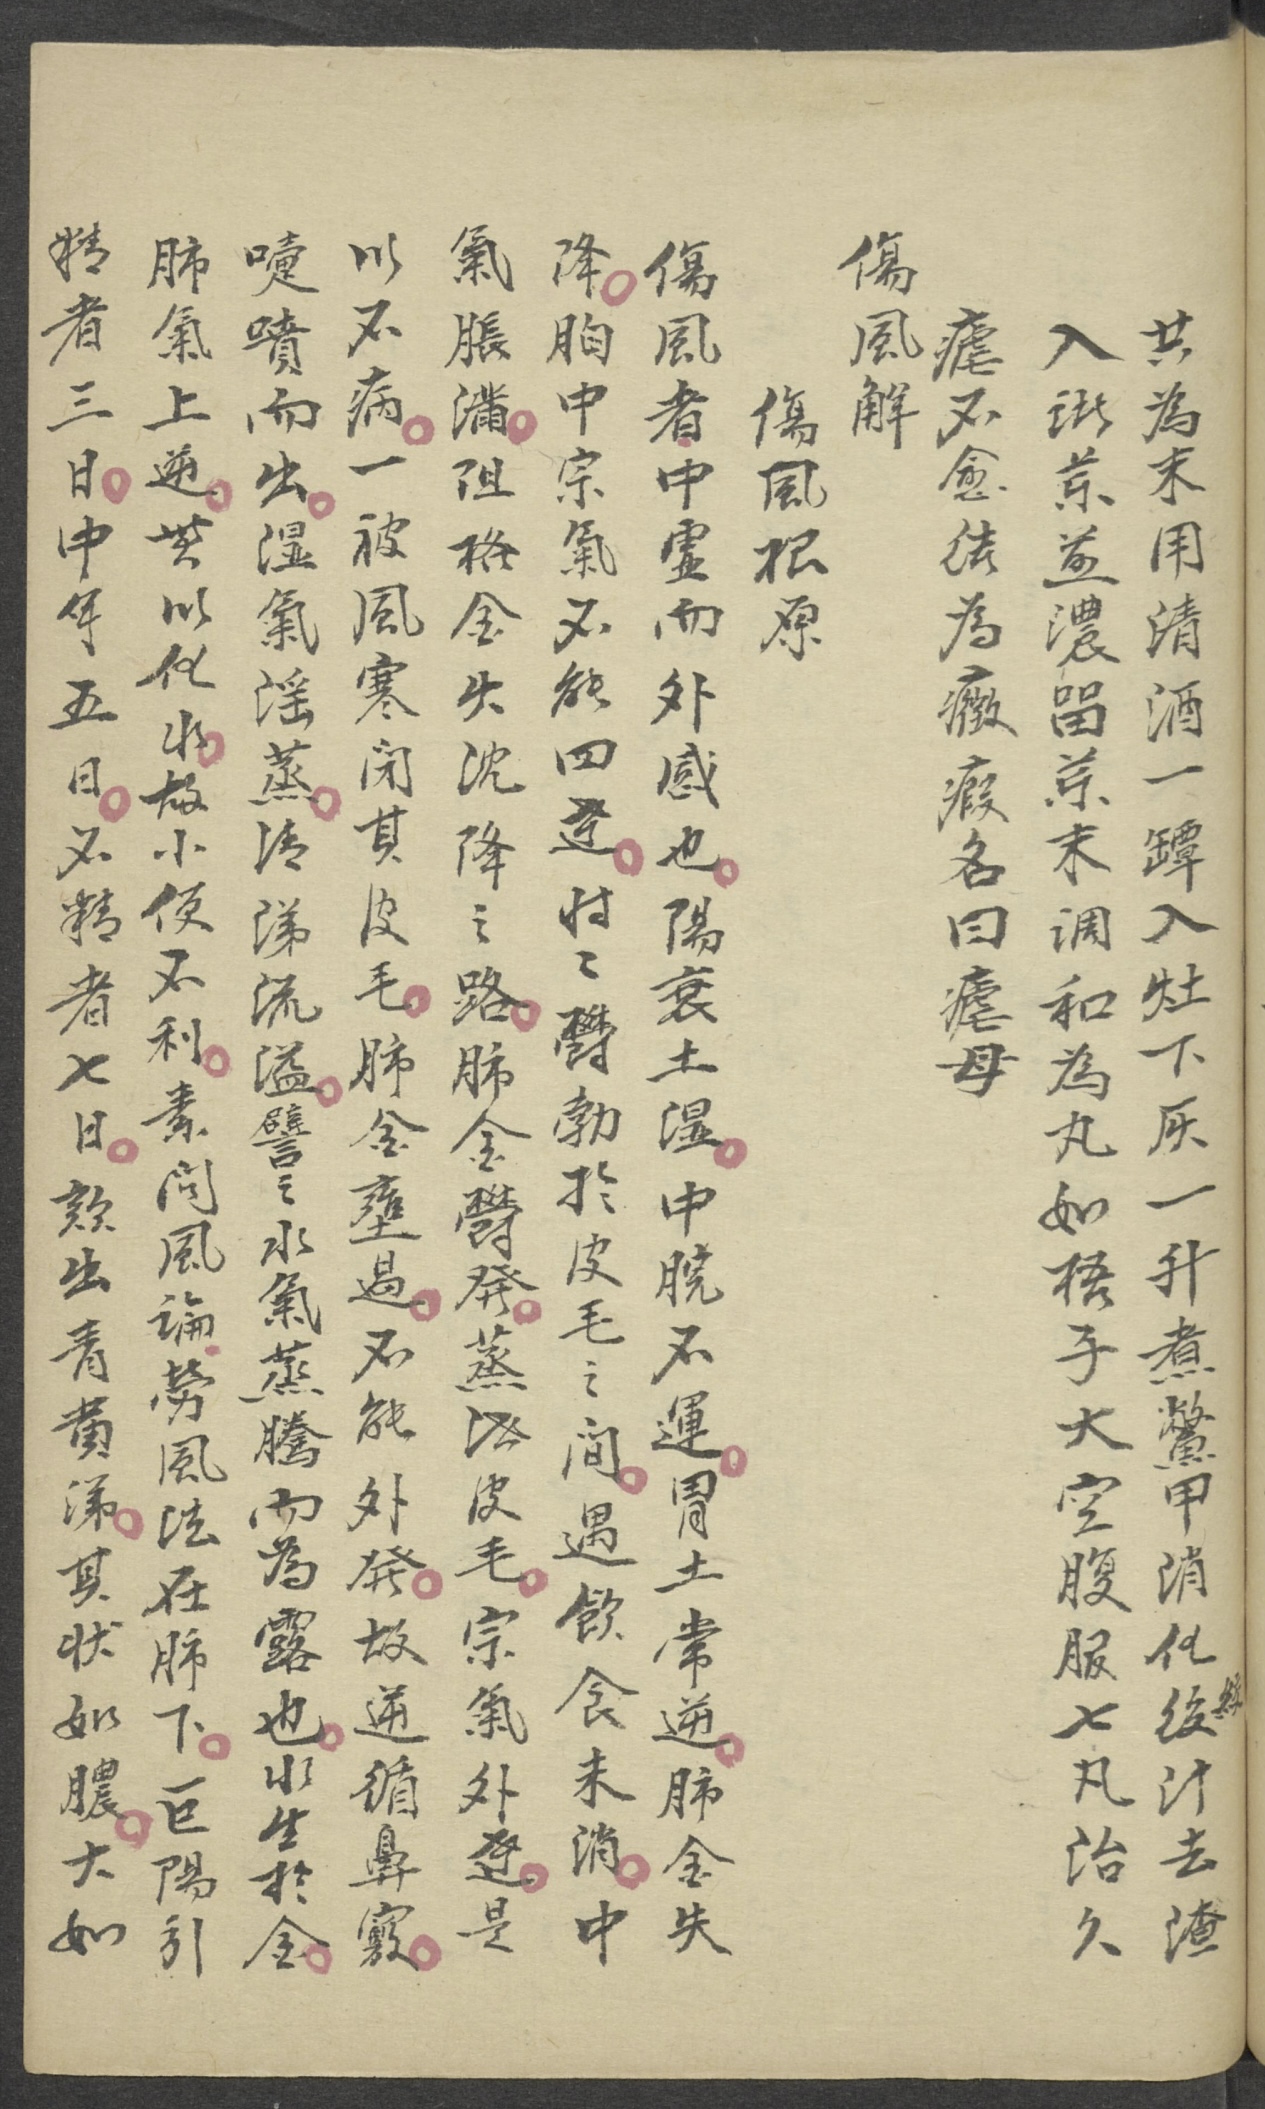 共為末用清酒一罈入灶下灰一升煮鱉甲消化後汁去渣
入諸藥煎濃留藥末调和為丸如梧子大空腹服七丸治久
瘧不愈結為癥瘕名曰瘧母
傷風解
傷風根原
傷風者中虛而外感也。陽衰土濕。中脘不運。胃土常逆。肺金失
降。胸中宗氣不能四達。時〻鬱勃於皮毛之間。遇飲食未消。中
氣脹滿。阻格金失沈降之路。肺金鬱發。蒸泄皮毛。宗氣外達。是
以不病。一被風寒闭其皮毛。肺金壅遏。不能外發。故逆循鼻竅。
嚏噴而出。濕氣淫蒸。清涕流溢。譬之水氣蒸騰而為露也。水生於金。
肺氣上逆。無以化水。故小便不利。素问風論。勞風法在肺下。巨陽引
精者三日。中年五日。不精者七日。欬出青黃涕。其状如膿。大如